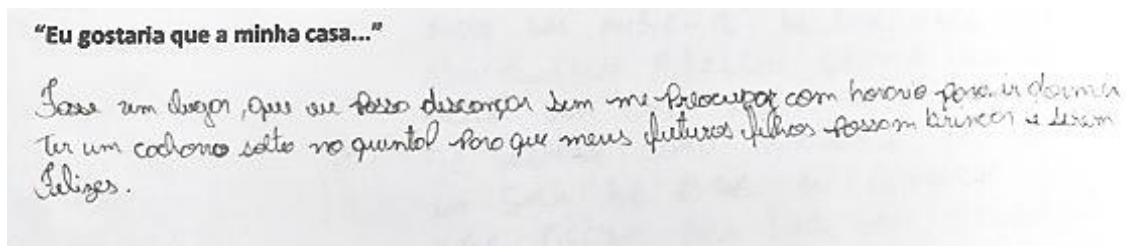 “Eu gostaria que a minha casa...”
Fosse um lugar, que eu posso discançar sem me preocupar com horario para ir dormir
ter um cachorro solto no quintal para que meus futuros filhos possam brincar e serem
Felizes.